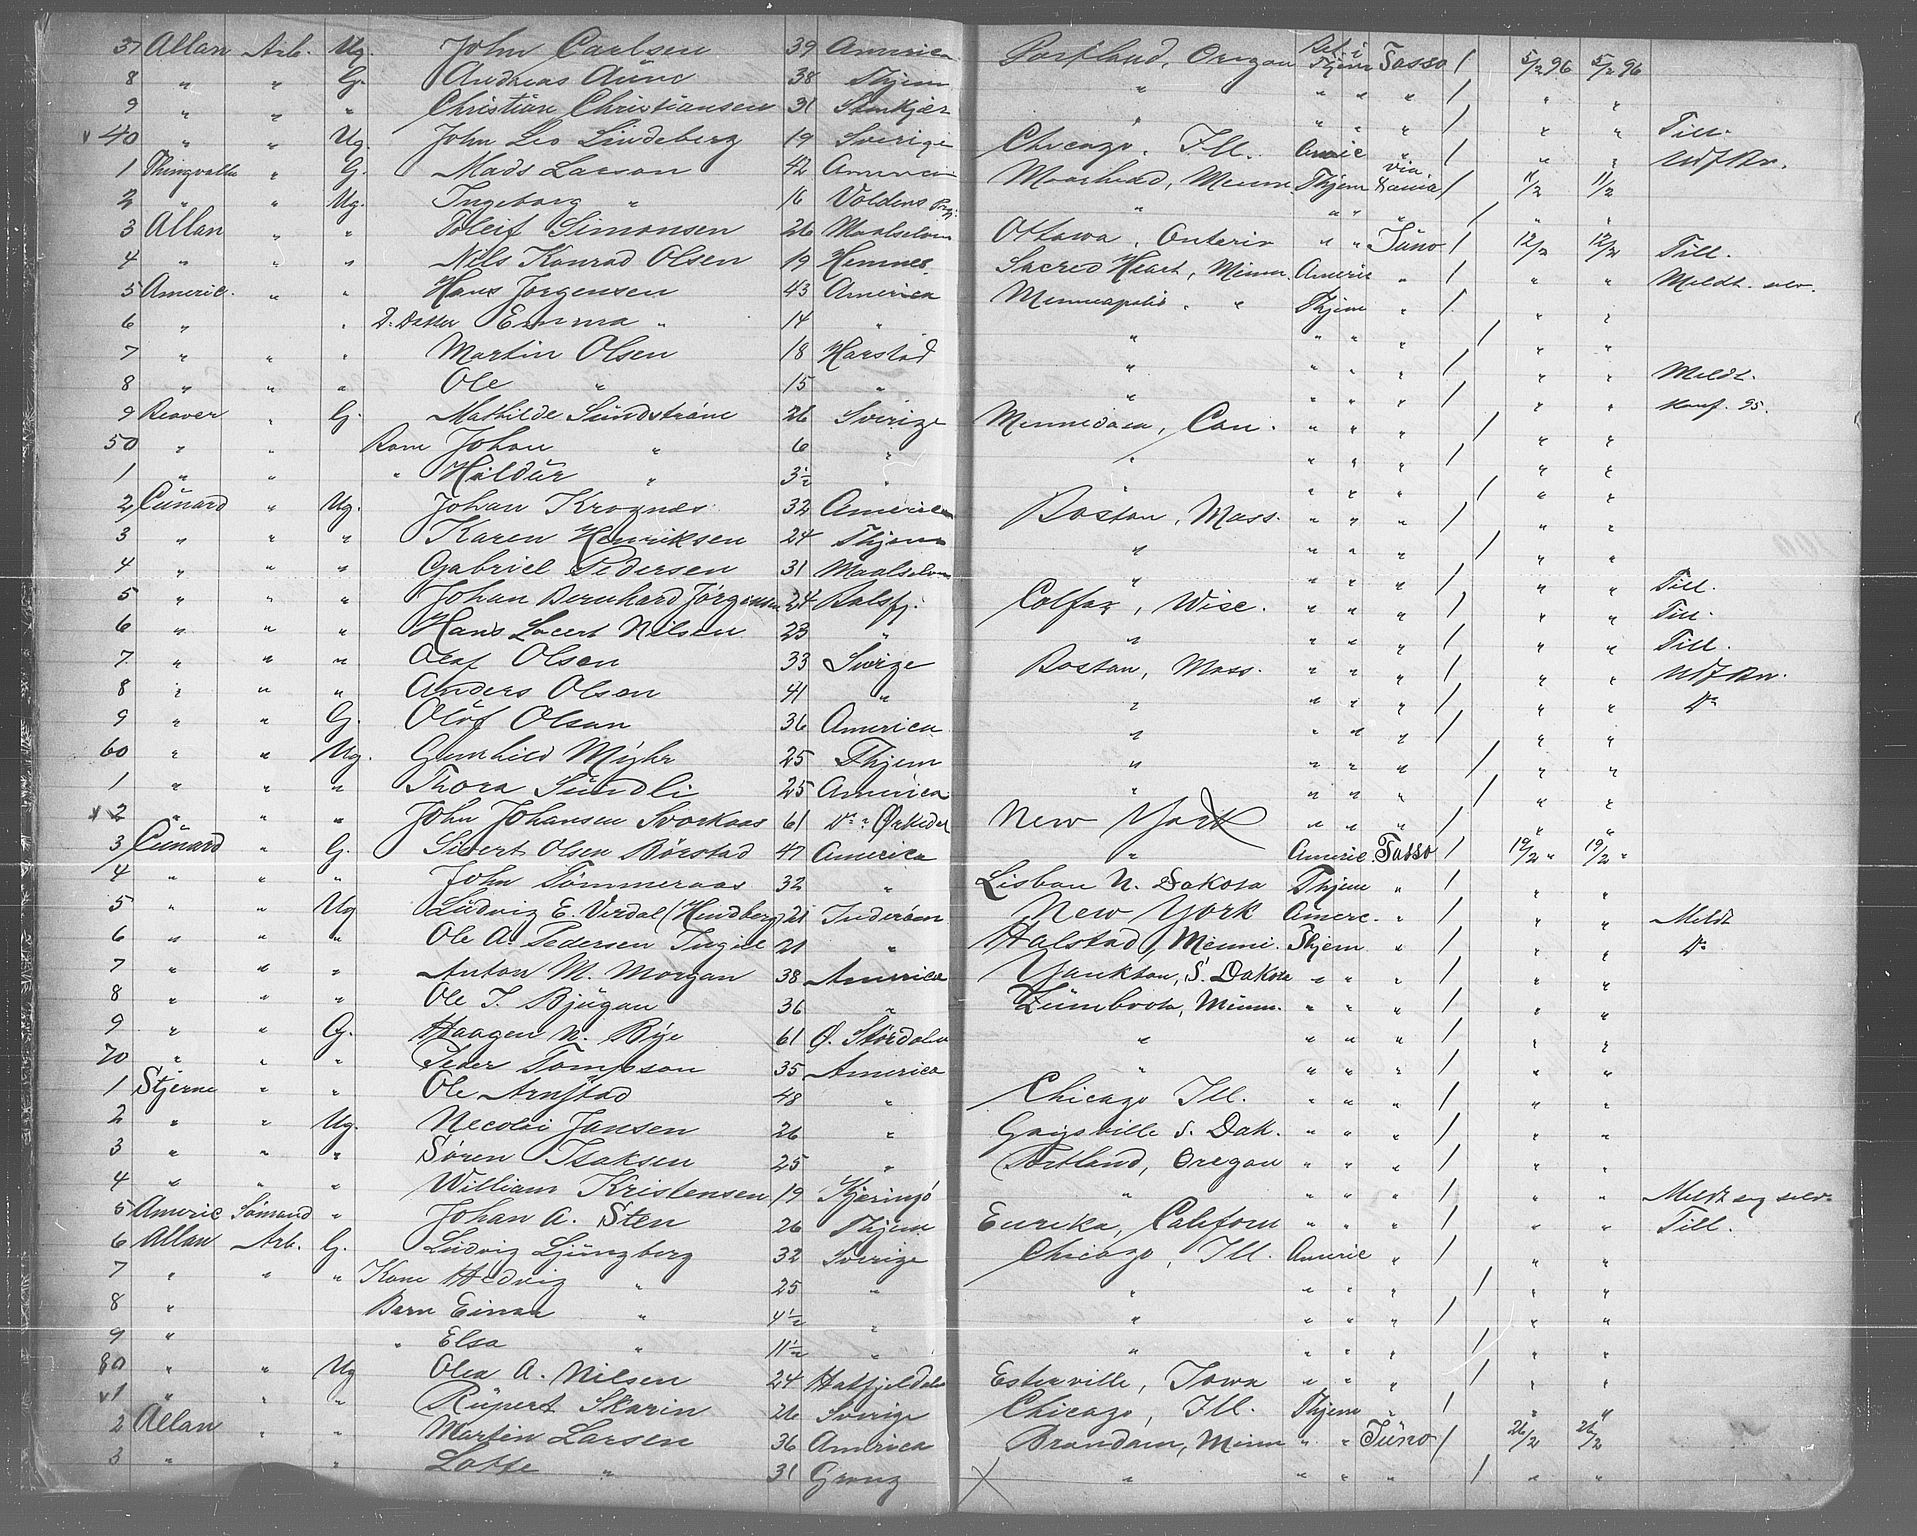 37 Allan Arb. Ug. John Carlsen 39 America Portland, Oregon Bet. i Thjem Tasso / 5/2 96 5/2 96
8 " " G. Andreas Aune 38 Thjem " " " " / " "
9 " " " Christian Christiansen 31 Stenkjær " " " " / " " Till.
v 40 " " Ug. John Leo Lindeberg 19 Sverige Chicago, Ill. Americ " / " " Udf Bn.
1 Thingvalla " G. Mads Larson 42 America Moorhead, Minn. Thjem via / 11/2 11/2
2 " " Ug. Ingeborg " 16 Voldens Prgj. " " " " / " "
3 Allan " " Tollef Simonsen 26 Maalselven Ottawa, Onterio " " Juno / 12/2 12/2 Till.
4 " " " Nils Konrad Olsen 19 Hemnes Sacred Heart, Minn. Americ " / " " Meldt. selv.
5 Americ. " " Hans Jorgensen 43 America Minneapolis, " Thjem " / " "
6 " " D. Datter Emma " 14 " " " " " / " "
7 " " " Martin Olsen 18 Harstad " " " " / " " Meldt.
8 " " " Ole " 15 " " " " " / " " Konf. 95.
9 Beaver " G. Mathilde Sundstrøm 26 Sverige Minnedosa, Can. " " " / " "
50 " " Barn Johan " 6 " " " " " / " "
1 " " " Hildur " 3½ " " " " " / " "
2 Cunard " Ug. Johan Krognes 32 America Boston, Mass. " " " / " "
3 " " " Karen Henriksen 24 Thjem " " " " / " "
4 " " " Gabriel Pedersen 31 Maalselven " " " " / " " Till.
5 " " " Johan Bernhard Jørgensen 24 Balsfj. Colfax, Wisc. " " " / " " Till.
6 " " " Hans Lacert Nilsen 23 " " " " " / " " Till.
7 " " " Olaf Olsen 33 Svirge Boston, Mass. " " " / " " Udf Bn.
8 " " " Anders Olsen 41 " " " " " / " " Do
9 " " G. Olof Olsan 36 America " " " " / " "
60 " " Ug. Gunhild Myhr 25 Thjem " " " " / " "
1 " " " Thora Sundli 25 America " " " " / " "
v 2 " " " John Johansen Svorkaas 61 Do " Ørkedal New York " " " / " "
3 Cunard " G. Sivert Olsen Børstad 47 America " Americ. Tasso / 19/2 " 19/2 "
4 " " " John Tømmeraas 32 " Lisbon N. Dakota Thjem " / " "
5 " " Ug. Ludvig E. Verdal (Hindberg) 21 Inderøen New York Americ. " / " " Meldt
6 " " " Ole A. Pedersen 21 " Halstad, Minni. Thjem " / " " Do
7 " " " Anton M. Morgan 38 America Yankton, S. Dakota " " " / " "
8 " " " Ole T. Bjugan 36 " Zumbrota, Minn. " " " / " "
9 " " G. Haagen N. Bye 61 Ø. Størdalen " " " " / " "
70 " " " Peder Tompson 35 America " " " " / " "
1 Stjerne " " Ole Arnstad 48 " Chicago Ill. " " " / " "
2 " " Ug. Necolai Jansen 26 " Gayville S. Dak. " " " / " "
3 " " " Søren Isaksen 25 " Portland, Oregon " " " / " "
4 " " " William Kristensen 19 Kjeringö " " " " / " " Meldt sig selv.
5 Americ Sømand " Johan A. Sten 26 Thjem Eureka, Californ " " " / " " Till.
6 Allan Arb. G. Ludvig Ljungberg 32 Sverige Chicago, Ill. Americ " / " "
7 " " " Kone Hedvig " 25 " " " " " / " "
8 " Barn Einar " 4½ " " " " " / " "
9 " " Elsa " 11½ " " " " " / " "
80 " " Ug Olea A. Nilsen 24 Hatfjeldal Esterville, Iowa " " " / " "
v 1 " " " Rupert Skarin 26 Sverige Chicago, Ill. Thjem " / " "
2 Allan " " Martin Larsen 36 America Minn " " Juno / 26/2 26/2
3 " " Lotte " 31 Grong " " " " / " "